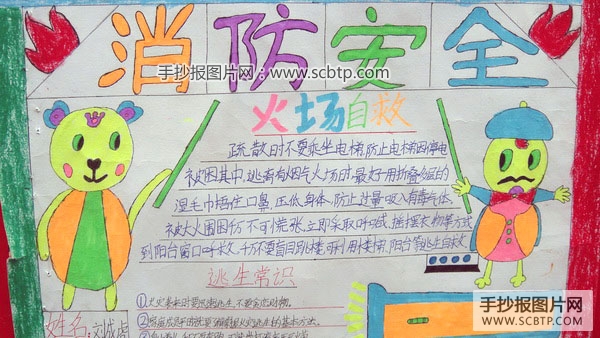 消防安全
手抄报图片网：www.scbtp.com
火场自救
疏散时不要乘坐电梯,防止电梯因停电
被困其中,逃离有烟气火场时,最好用折叠多层的
湿毛巾捂住口鼻,压低身体,防止过量吸入有毒气体.
被大火围困仿不可慌张,立即采取呼喊,摇摆衣物等方式
到阳台窗口呼救,千万不要盲目跳楼,可利用楼梯,阳台等逃生自救
逃生常识
①火灾袭来时要迅速逃生,不要贪恋财物.
姓名:刘成虎
手抄报图片网
WWW.SCBTP.COM